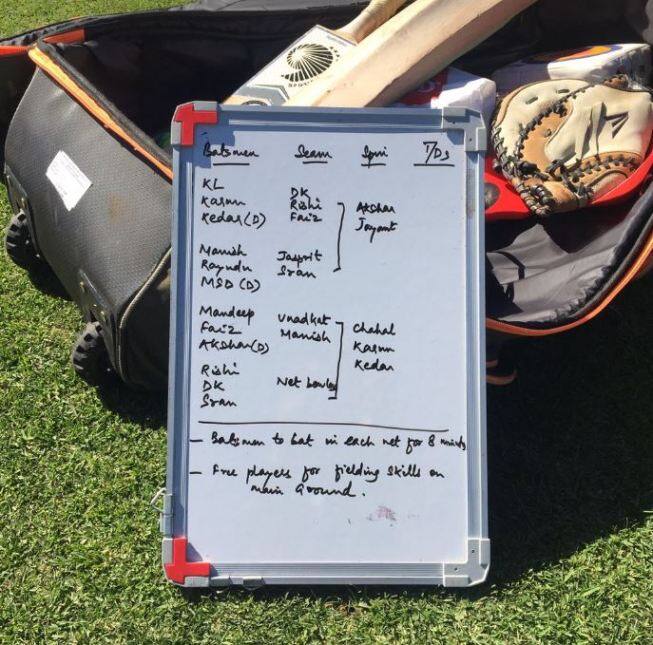 Batsmen Seam Spin T/Ds
KL
Karun
Kedar(D)
DK
Rishi
Faiz
Akshar
Jayant
Manish
Rayudu
MSD (D)
Jasprit
Sran
Mandeep
Faiz
Akshar(D)
Unadket
Manish
Chahal
Karun
Kedar
Rishi
DK
Sran
Net bowler
- Batsmen to bat in each net for 8 minutes
- Free players for fielding skills on
main Ground.